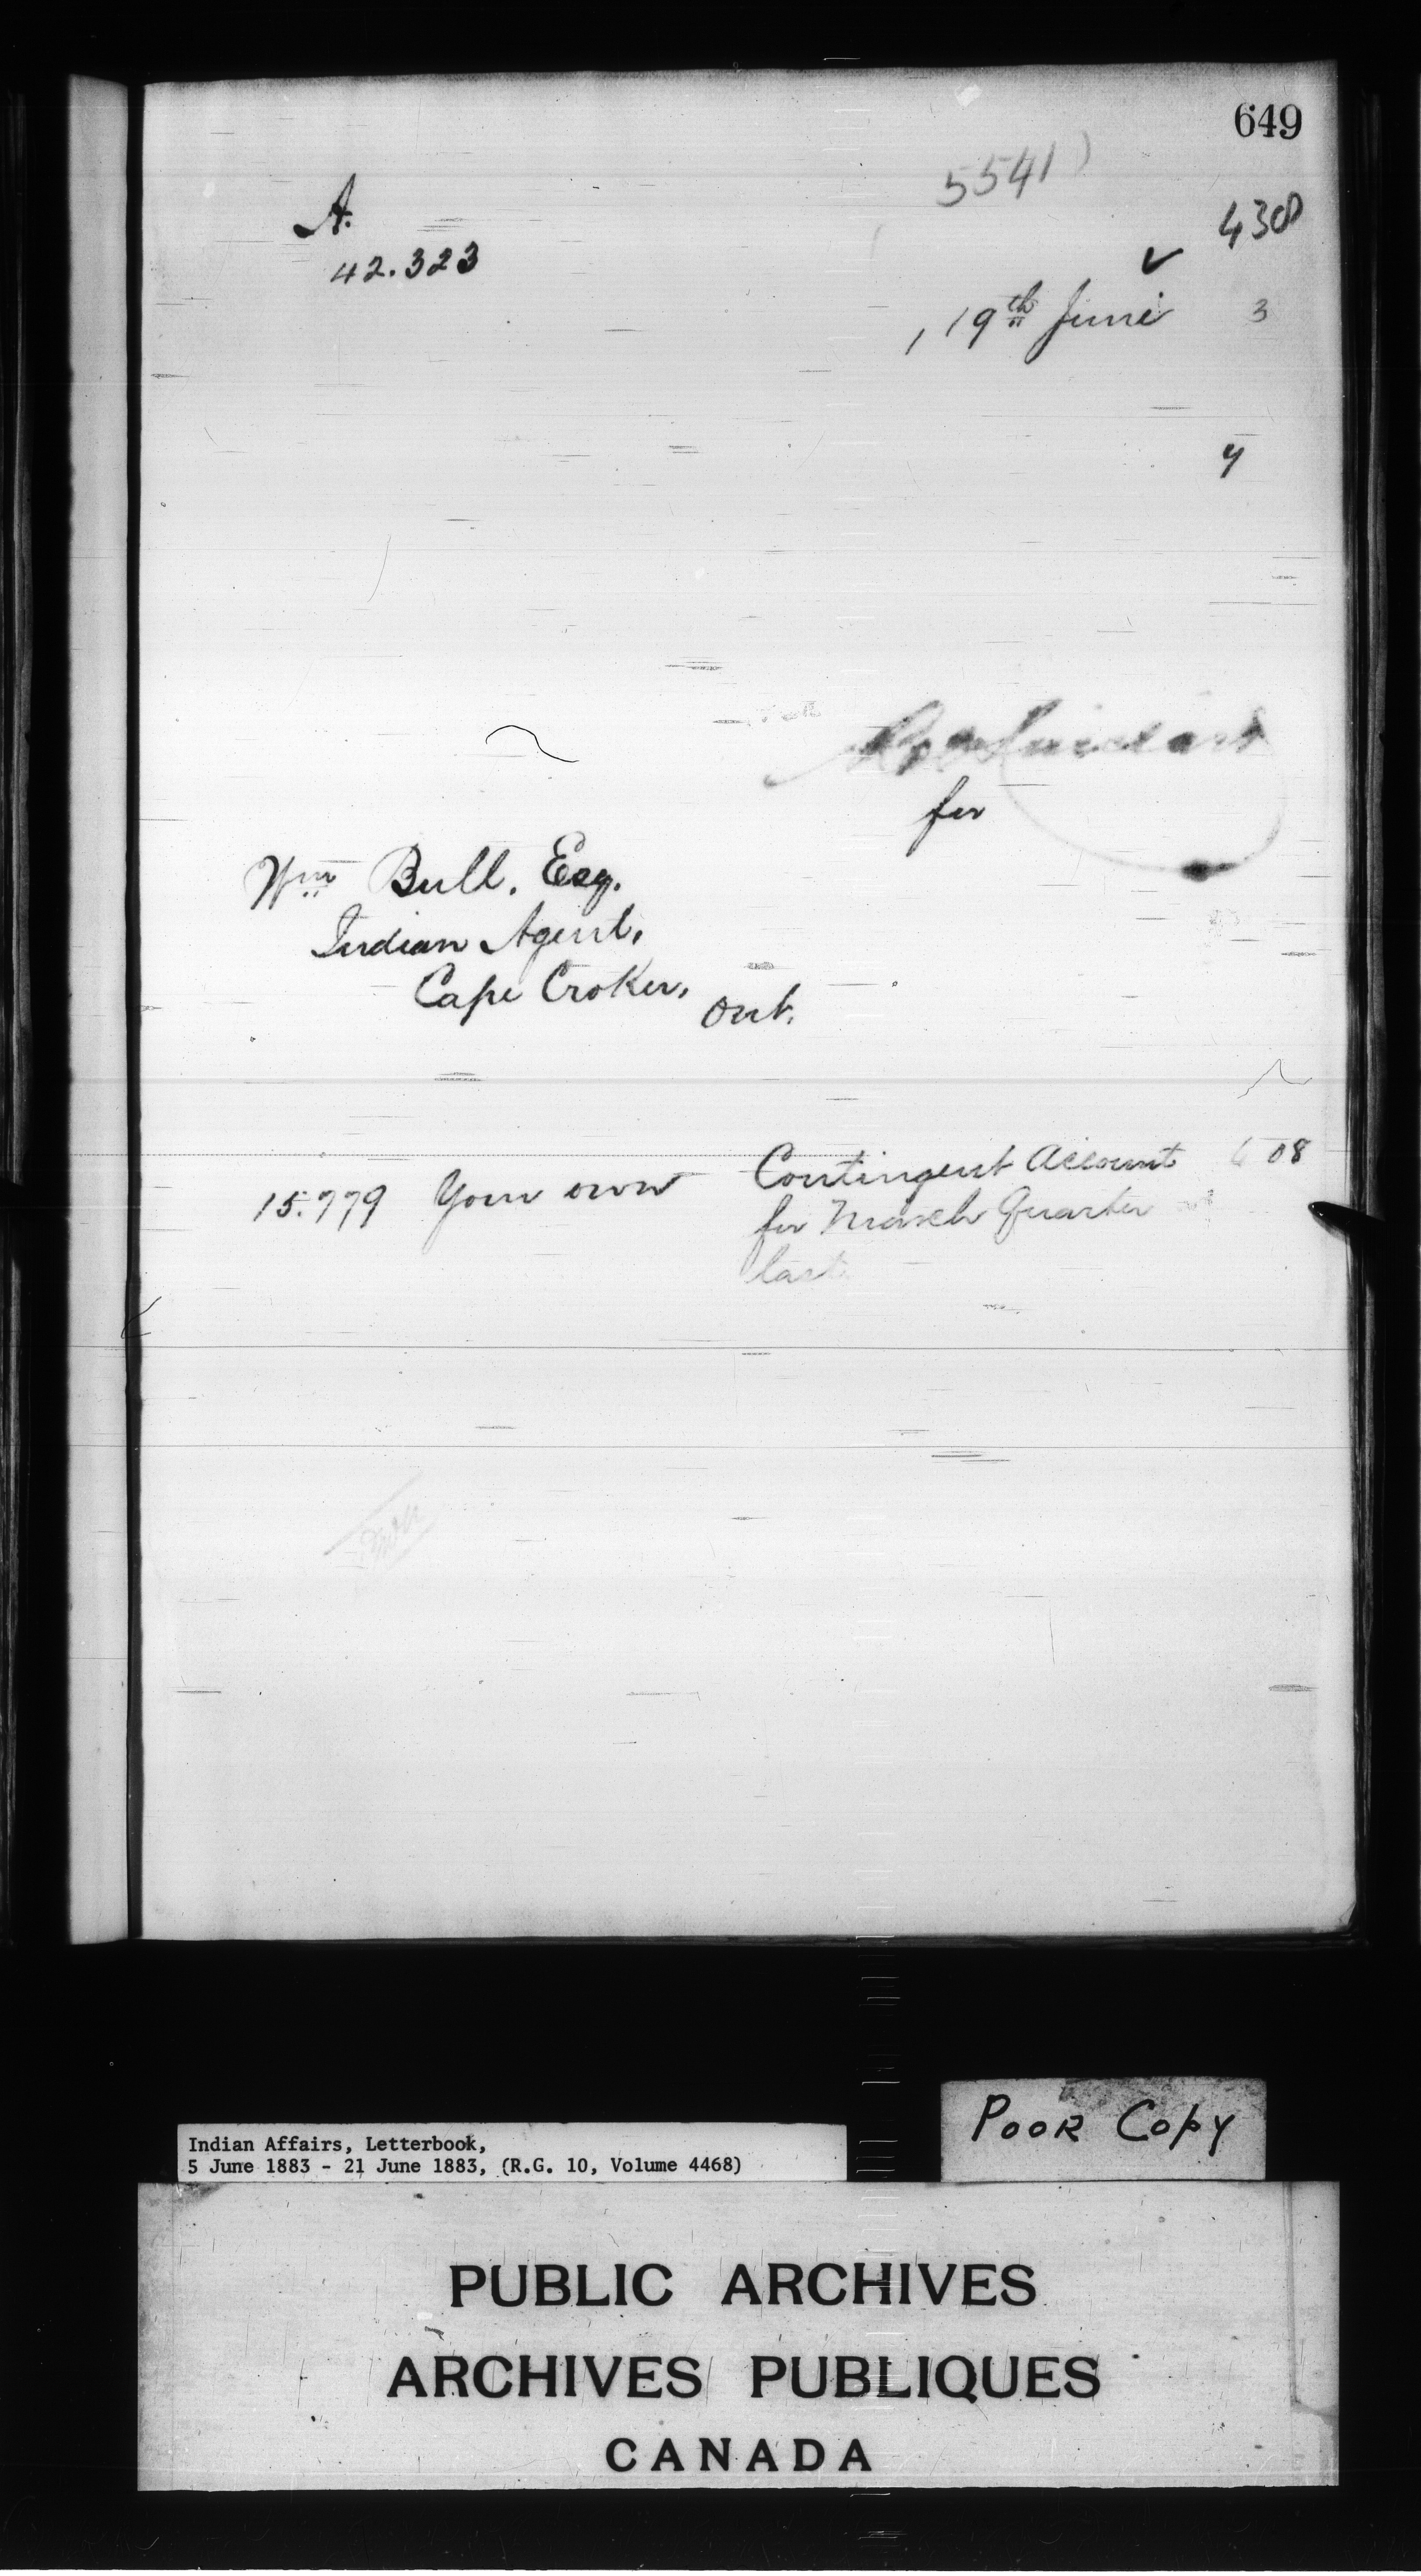 649
5541)
A.
430
42.323
, 19th June 3
4
for
Wm Bull. Esq.
Indian Agent,
Cape Croker,
Ont.
15.779 Your own Contingent Account 08
for March Quarter
last
Poor Copy
Indian Affairs, Letterbook,
5 June 1883 - 21 June 1883, (R.G. 10, Volume 4468)
PUBLIC ARCHIVES
ARCHIVES PUBLIQUES
CANADA